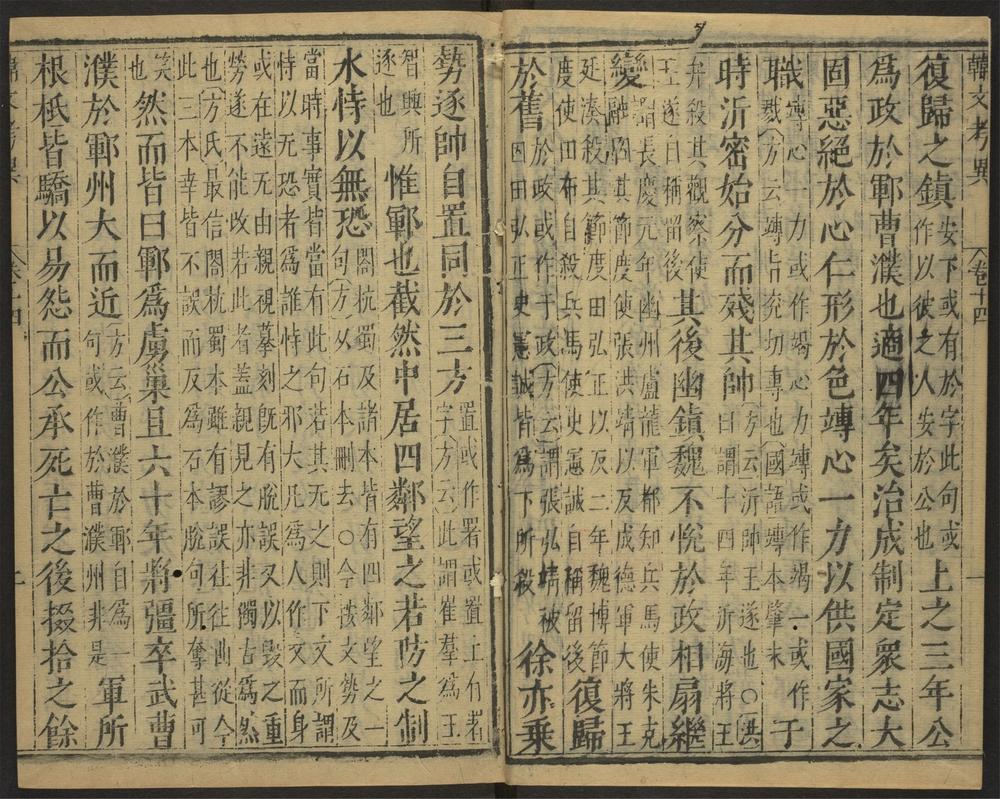 韓文考異　卷十四　一
復歸之鎮
安下或有於字此句或
作以彼之人安於公也
上之三年公
爲政於鄆曹濮也適四年矣治成制定衆志大
固惡絕於心仁形於色竱心一力以供國家之
職
竱心一力或作竭心力竱或作竭一或作
戮方云竱旨兖切專也國語竱本肇末
于
時沂密始分而殘其帥
方云沂帥王遂也○洪
曰謂十四年沂海將王
弁殺其觀察使
王遂自稱留後
其後幽鎮魏不悅於政相扇繼
變
謂長慶元年幽州盧龍軍都知兵馬使朱克
融囚其節度使張洪靖以反成德軍大將王
廷湊殺其節度田弘正以反二年魏博節
度使田布自殺兵馬使史憲誠自稱留後
復歸
於舊
於政或作于政方云謂張弘靖被
囚田弘正史憲誠皆爲下所殺
徐亦乘
勢逐帥自置同於三方
置或作署或置上有者
字方云此謂崔羣爲王
智興所
逐也
惟鄆也截然中居四鄰望之若防之制
水恃以無恐
閣杭蜀及諸本皆有四鄰望之一
句方从石本刪去○今按文勢及
當時事實皆當有此句若其无之則下文所謂
恃以无恐者爲誰恃之邪大凡爲人作文而身
或在遠无由親視摹刻旣有脫誤又以毀之重
勞遂不能改若此者蓋親見之亦非獨古爲然
也方氏最信閣杭蜀本雖有謬誤往往曲從今
此三本幸皆不誤而反爲石本脫句所奪甚可
笑
也
然而皆曰鄆爲虜巢且六十年將彊卒武曹
濮於鄆州大而近
方云曹濮於鄆自爲一
句或作於曹濮州非是
軍所
根柢皆驕以易怨而公承死亡之後掇拾之餘